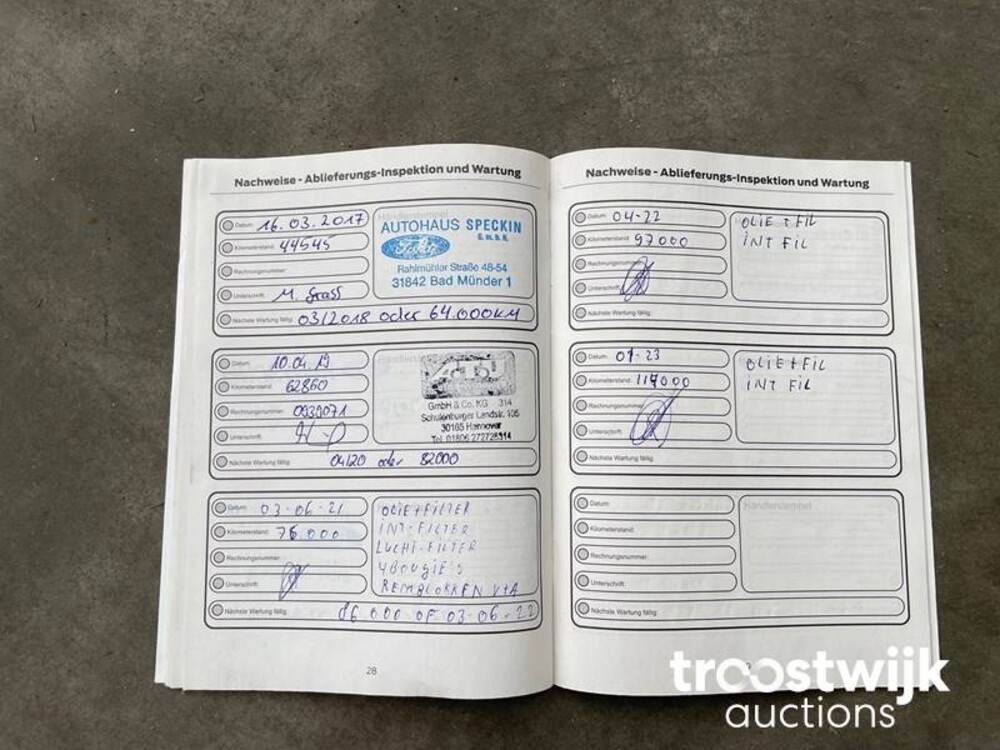 Nachweise - Ablieferungs-Inspektion und Wartung
Datum: 16.03.2017
Kilometerstand: 44545
Rechnungsnummer:
Unterschrift: M. Grass
Nächste Wartung fällig: 03/2018 oder 64.000KM
Händlerstempel
AUTOHAUS SPECKIN
G.m.b.H.
Ford
Rahlmühler Straße 48-54
31842 Bad Münder 1
Datum: 10.04.19
Kilometerstand: 62860
Rechnungsnummer: 0939071
Unterschrift:
Nächste Wartung fällig: 04/20 oder 82000
ATU
GmbH & Co. KG 314
Schulenburger Landstr. 105
30165 Hannover
Tel. 01806 272728314
Datum: 03-06-21
Kilometerstand: 76.000
Rechnungsnummer:
Unterschrift:
Nächste Wartung fällig: 86.000 OF 03-06-22
OLIE+FILTER
INT-FILTER
LUCHT-FILTER
4 BOUGIES
REMBLOKKEN V+A
28
Nachweise - Ablieferungs-Inspektion und Wartung
Datum: 04-22
Kilometerstand: 97000
Rechnungsnummer:
Unterschrift:
Nächste Wartung fällig:
OLIE+FIL
INT FIL
Datum: 07-23
Kilometerstand: 117000
Rechnungsnummer:
Unterschrift:
Nächste Wartung fällig:
OLIE+FIL
INT FIL
Datum:
Kilometerstand:
Rechnungsnummer:
Unterschrift:
Nächste Wartung fällig:
Händlerstempel
troostwijk
auctions